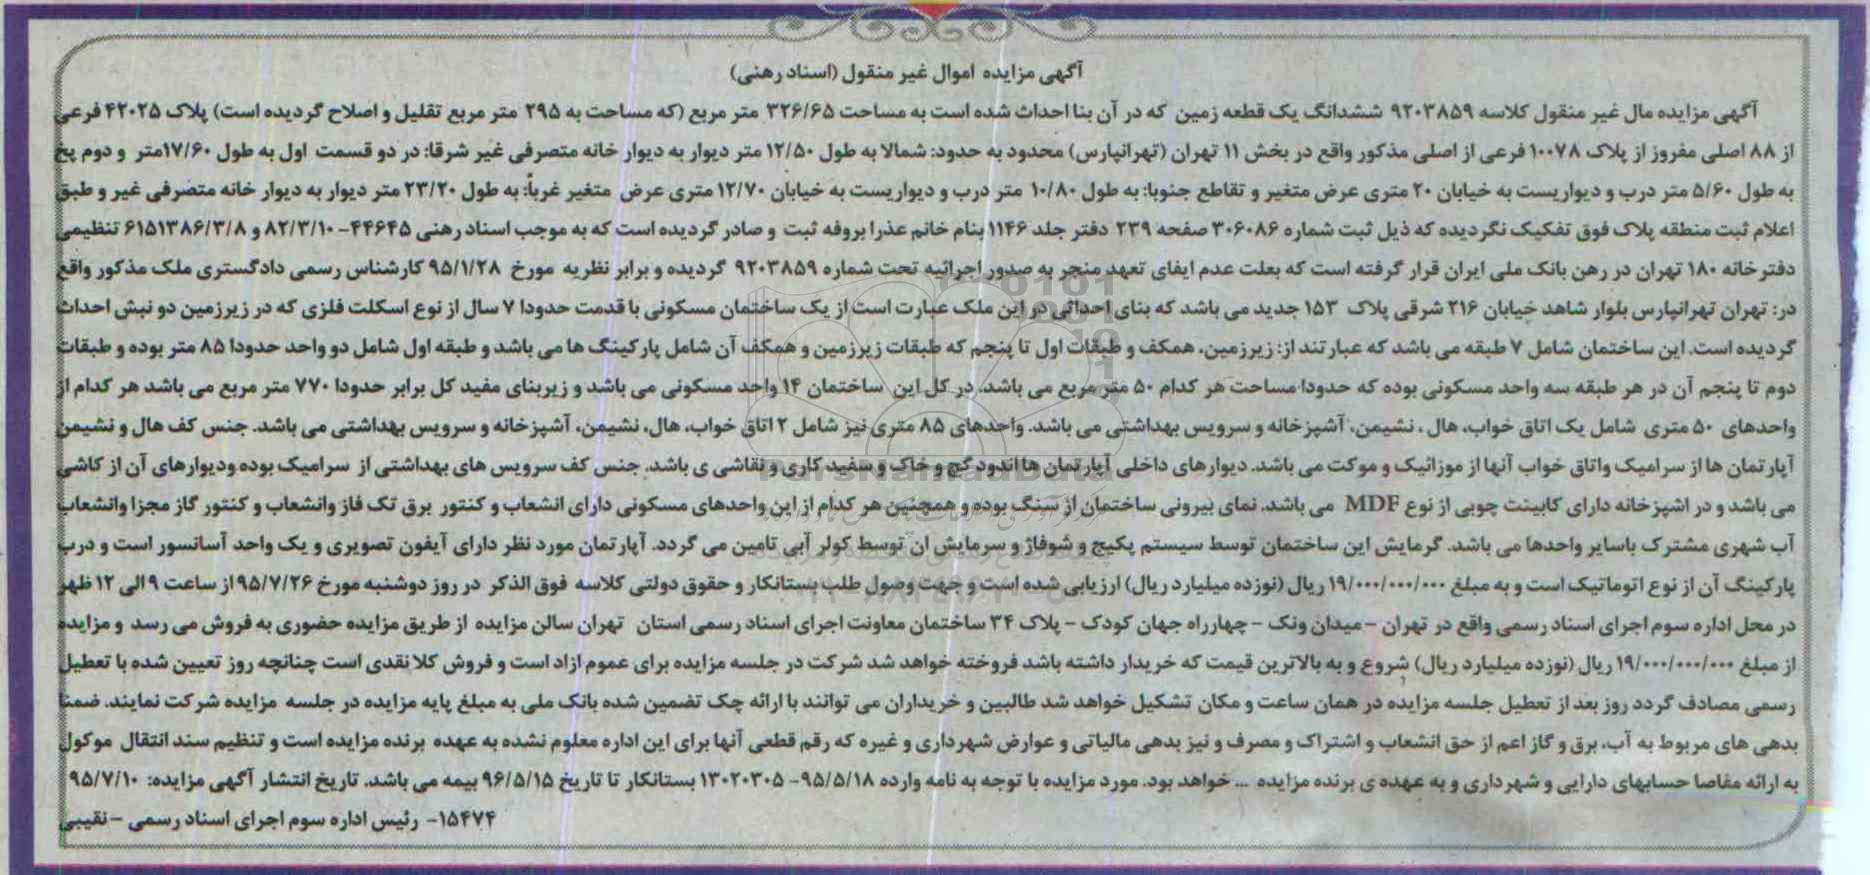 آگهی مزایده اموال غیر منقول (اسناد رهنی)
آگهی مزایده مال غیر منقول کلاسه ۹۲۰۳۸۵۹ ششدانگ یک قطعه زمین که در آن بنا احداث شده است به مساحت ۳۲۶/۶۵ متر مربع (که مساحت به ۲۹۵ متر مربع تقلیل و اصلاح گردیده است) پلاک ۴۲۰۲۵ فرعی
از ۸۸ اصلی مفروز از پلاک ۱۰۰۷۸ فرعی از اصلی مذکور واقع در بخش ۱۱ تهران (تهرانپارس) محدود به حدود: شمالا به طول ۱۲/۵۰ متر دیوار به دیوار خانه متصرفی غیر شرقا: در دو قسمت اول به طول ۱۷/۶۰متر و دوم پخ
به طول ۵/۶۰ متر درب و دیواریست به خیابان ۲۰ متری عرض متغیر و تقاطع جنوبا: به طول ۱۰/۸۰ متر درب و دیواریست به خیابان ۱۲/۷۰ متری عرض متغیر غرباً: به طول ۲۳/۲۰ متر دیوار به دیوار خانه متصرفی غیر و طبق
اعلام ثبت منطقه پلاک فوق تفکیک نگردیده که ذیل ثبت شماره ۳۰۶۰۸۶ صفحه ۲۳۹ دفتر جلد ۱۱۴۶ بنام خانم عذرا بروفه ثبت و صادر گردیده است که به موجب اسناد رهنی ۴۴۶۴۵- ۸۲/۳/۱۰ و ۶۱۵۱۳۸۶/۳/۸ تنظیمی
دفترخانه ۱۸۰ تهران در رهن بانک ملی ایران قرار گرفته است که بعلت عدم ایفای تعهد منجر به صدور اجرائیه تحت شماره ۹۲۰۳۸۵۹ گردیده و برابر نظریه مورخ ۹۵/۱/۲۸ کارشناس رسمی دادگستری ملک مذکور واقع
در: تهران تهرانپارس بلوار شاهد خیابان ۲۱۶ شرقی پلاک ۱۵۳ جدید می باشد که بنای احداثی در این ملک عبارت است از یک ساختمان مسکونی با قدمت حدودا ۷ سال از نوع اسکلت فلزی که در زیرزمین دو نبش احداث
گردیده است. این ساختمان شامل ۷ طبقه می باشد که عبارتند از: زیرزمین، همکف و طبقات اول تا پنجم که طبقات زیرزمین و همکف آن شامل پارکینگ ها می باشد و طبقه اول شامل دو واحد حدودا ۸۵ متر بوده و طبقات
دوم تا پنجم آن در هر طبقه سه واحد مسکونی بوده که حدودا مساحت هر کدام ۵۰ متر مربع می باشد. در کل این ساختمان ۱۴ واحد مسکونی می باشد و زیربنای مفید کل برابر حدودا ۷۷۰ متر مربع می باشد هر کدام از
واحدهای ۵۰ متری شامل یک اتاق خواب، هال ، نشیمن، آشپزخانه و سرویس بهداشتی می باشد. واحدهای ۸۵ متری نیز شامل ۲ اتاق خواب، هال، نشیمن، آشپزخانه و سرویس بهداشتی می باشد. جنس کف هال و نشیمن
آپارتمان ها از سرامیک واتاق خواب آنها از موزائیک و موکت می باشد. دیوارهای داخلی آپارتمان ها اندود گچ و خاک و سفید کاری و نقاشی ی باشد. جنس کف سرویس های بهداشتی از سرامیک بوده ودیوارهای آن از کاشی
می باشد و در اشپزخانه دارای کابینت چوبی از نوع MDF می باشد. نمای بیرونی ساختمان از سنگ بوده و همچنین هر کدام از این واحدهای مسکونی دارای انشعاب و کنتور برق تک فاز وانشعاب و کنتور گاز مجزا وانشعاب
آب شهری مشترک باسایر واحدها می باشد. گرمایش این ساختمان توسط سیستم پکیج و شوفاژ و سرمایش ان توسط کولر آبی تامین می گردد. آپارتمان مورد نظر دارای آیفون تصویری و یک واحد آسانسور است و درب
پارکینگ آن از نوع اتوماتیک است و به مبلغ ۱۹/۰۰۰/۰۰۰/۰۰۰ ریال (نوزده میلیارد ریال) ارزیابی شده است و جهت وصول طلب بستانکار و حقوق دولتی کلاسه فوق الذکر در روز دوشنبه مورخ ۹۵/۷/۲۶ از ساعت ۹ الی ۱۲ ظهر
در محل اداره سوم اجرای اسناد رسمی واقع در تهران - میدان ونک - چهارراه جهان کودک - پلاک ۳۴ ساختمان معاونت اجرای اسناد رسمی استان تهران سالن مزایده از طریق مزایده حضوری به فروش می رسد و مزایده
از مبلغ ۱۹/۰۰۰/۰۰۰/۰۰۰ ریال (نوزده میلیارد ریال) شروع و به بالاترین قیمت که خریدار داشته باشد فروخته خواهد شد شرکت در جلسه مزایده برای عموم ازاد است و فروش کلا نقدی است چنانچه روز تعیین شده با تعطیل
رسمی مصادف گردد روز بعد از تعطیل جلسه مزایده در همان ساعت و مکان تشکیل خواهد شد طالبین و خریداران می توانند با ارائه چک تضمین شده بانک ملی به مبلغ پایه مزایده در جلسه مزایده شرکت نمایند. ضمنا
بدهی های مربوط به آب، برق و گاز اعم از حق انشعاب و اشتراک و مصرف و نیز بدهی مالیاتی و عوارض شهرداری و غیره که رقم قطعی آنها برای این اداره معلوم نشده به عهده برنده مزایده است و تنظیم سند انتقال موکول
به ارائه مفاصا حسابهای دارایی و شهرداری و به عهده ی برنده مزایده ... خواهد بود. مورد مزایده با توجه به نامه وارده ۹۵/۵/۱۸- ۱۳۰۲۰۳۰۵ بستانکار تا تاریخ ۹۶/۵/۱۵ بیمه می باشد. تاریخ انتشار آگهی مزایده: ۹۵/۷/۱۰
۱۵۴۷۴- رئیس اداره سوم اجرای اسناد رسمی - نقیبی
ParsNamadData